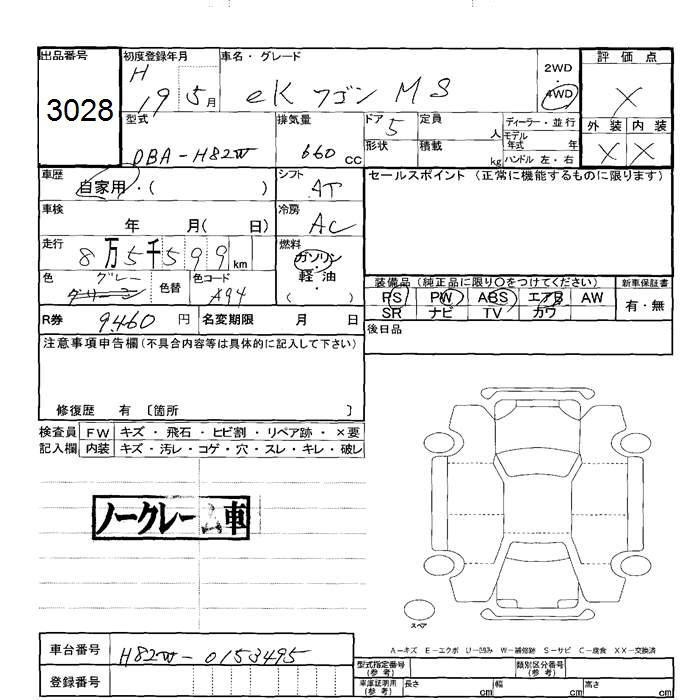 出品番号
3028
初度登録年月
H
19 5 月
車名・グレード
eK ワゴン MS
2WD
・
4WD
評価点
X
外装 内装
X X
型式
DBA-H82W
排気量
660 cc
ドア 5
形状
定員
人
積載
kg
ディーラー・並行
モデル
年式 年
ハンドル 左・右
車歴
自家用・( )
シフト
AT
セールスポイント (正常に機能するものに限ります)
車検
年 月( 日)
冷房
AC
走行
8万5千599km
燃料
ガソリン
・
軽・油
( )
色
グレー
グリーン
色替
色コード
A94
装備品 (純正品に限り○をつけてください)
新車保証書
PS PW ABS エアB AW
有・無
SR ナビ TV カワ
R券 9460 円
名変期限 月 日
後日品
注意事項申告欄(不具合内容等は具体的に記入して下さい)
修復歴 有 〔箇所 〕
検査員 FW キズ・飛石・ヒビ割・リペア跡・×要
記入欄 内装 キズ・汚レ・コゲ・穴・スレ・キレ・破レ
ノークレーム車
スペア
A-キズ E-エクボ U-凹み W-補修跡 S-サビ C-腐食 XX-交換済
車台番号
H82W-0153495
登録番号
型式指定番号
(参考)
類別区分番号
(参考)
車庫証明用
(参考)
長さ cm 幅 cm 高さ cm